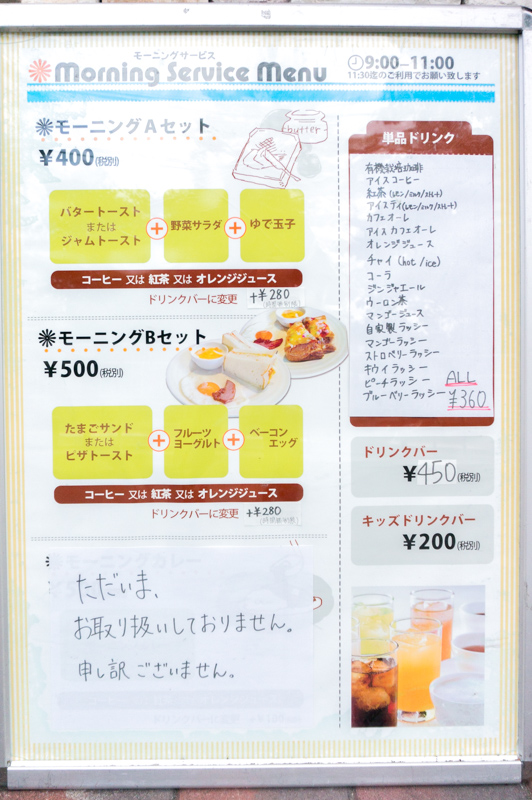 モーニングサービス
Morning Service Menu
9:00―11:00
11:30迄のご利用でお願い致します
モーニングAセット
¥400(税別)
butter
バタートースト
または
ジャムトースト
+
野菜サラダ
+
ゆで玉子
コーヒー 又は 紅茶 又は オレンジジュース
ドリンクバーに変更 +¥280
モーニングBセット
¥500(税別)
たまごサンド
または
ピザトースト
+
フルーツ
ヨーグルト
+
ベーコン
エッグ
コーヒー 又は 紅茶 又は オレンジジュース
ドリンクバーに変更 +¥280
モーニングカレー
ただいま、
お取り扱いしておりません。
申し訳ございません。
単品ドリンク
有機栽培珈琲
アイスコーヒー
紅茶(レモン/ミルク/ストレート)
アイスティ(レモン/ミルク/ストレート)
カフェオーレ
アイスカフェオーレ
オレンジジュース
チャイ(hot/ice)
コーラ
ジンジャエール
ウーロン茶
マンゴージュース
自家製ラッシー
マンゴーラッシー
ストロベリーラッシー
キウイラッシー
ピーチラッシー
ブルーベリーラッシー
ALL
¥360
ドリンクバー
¥450(税別)
キッズドリンクバー
¥200(税別)